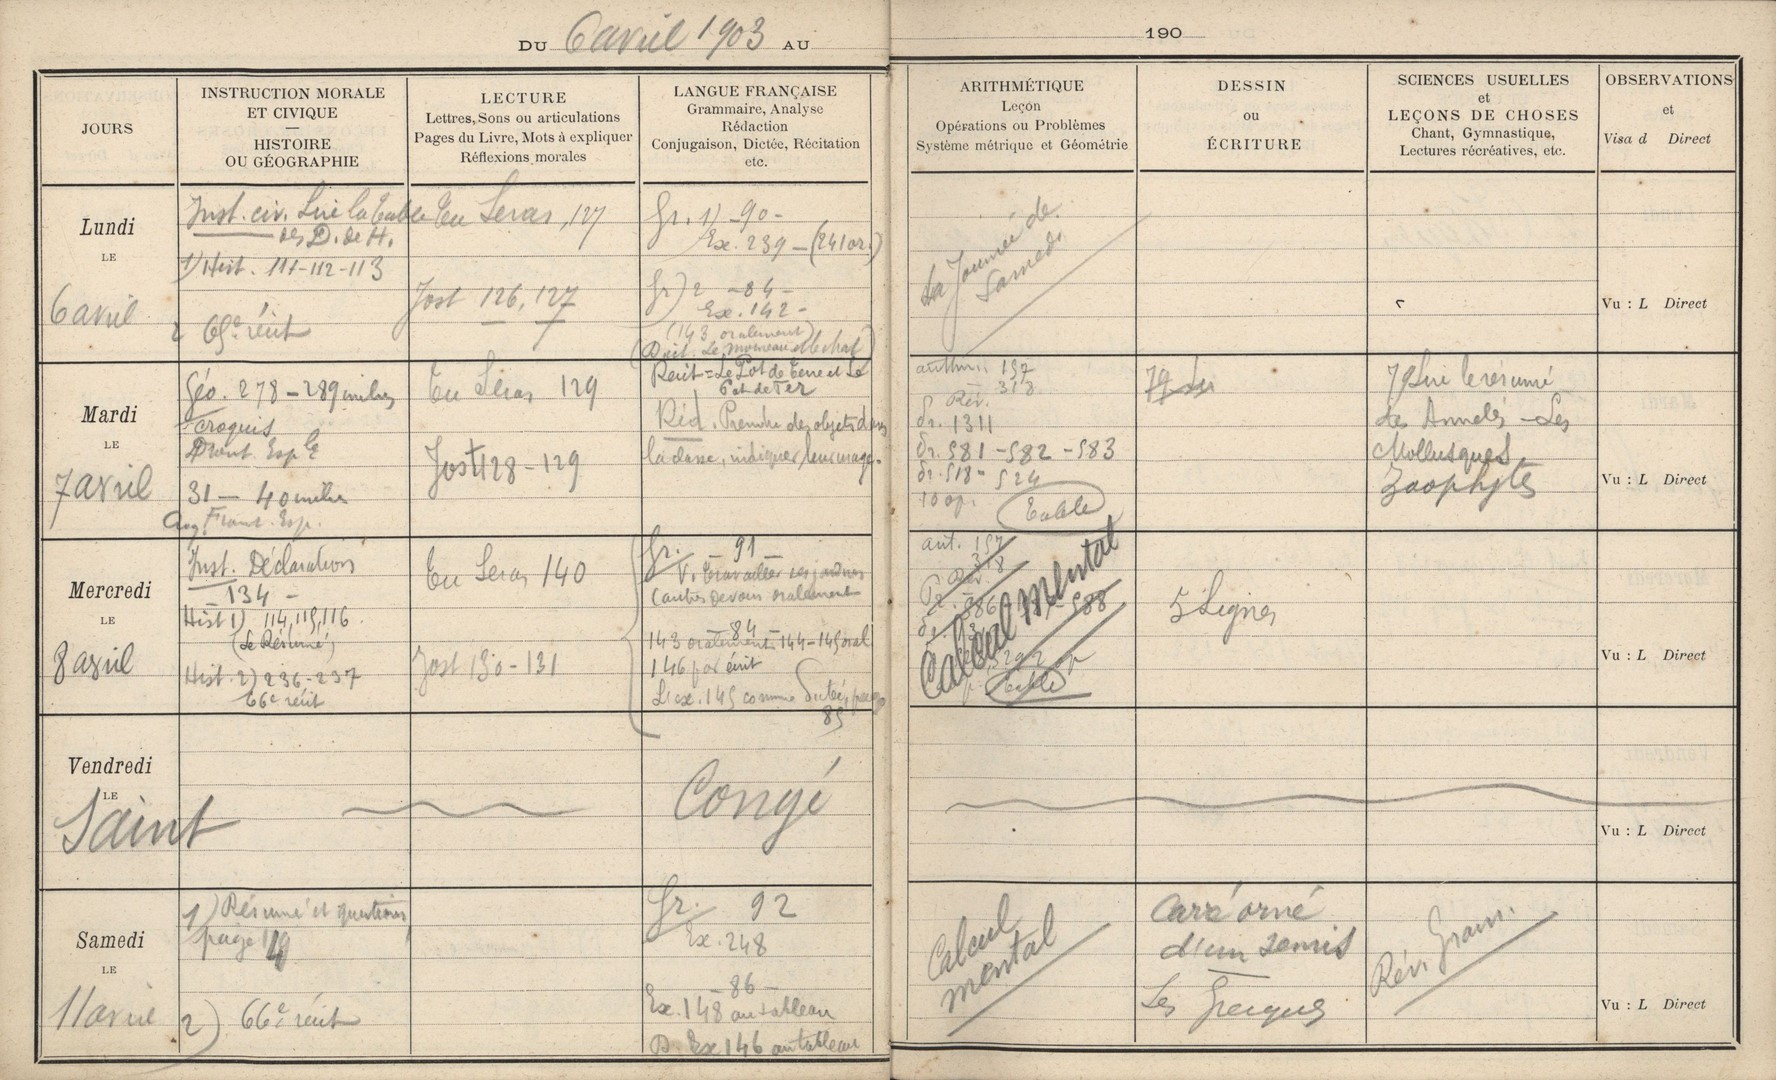 DU 6 avril 1903 AU
190
JOURS
INSTRUCTION MORALE
ET CIVIQUE
—
HISTOIRE
OU GÉOGRAPHIE
LECTURE
Lettres, Sons ou articulations
Pages du Livre, Mots à expliquer
Réflexions morales
LANGUE FRANÇAISE
Grammaire, Analyse
Rédaction
Conjugaison, Dictée, Récitation
etc.
ARITHMÉTIQUE
Leçon
Opérations ou Problèmes
Système métrique et Géométrie
DESSIN
ou
ÉCRITURE
SCIENCES USUELLES
et
LEÇONS DE CHOSES
Chant, Gymnastique,
Lectures récréatives, etc.
OBSERVATIONS
et
Visa d Direct
Lundi
LE
6 avril
Inst. civ. Lire la Table
des D. de H.
1) Hist. 111-112-113
2 65e récit
Tu Seras, 127
Jost 126, 127
Gr. 1) -90-
Ex. 239 - (241 or.)
Gr) 2 -84-
Ex. 142-
(143 oralement)
Le moineau et le chat)
La Journée de
Samedi
Vu : L Direct
Mardi
LE
7 avril
Géo. 278 - 289 inclus
croquis
31 - 40 inclus
Tu Seras 129
Jost 128-129
Récit = Le Pot de Terre et Le
Pot de Fer
Réd. Prendre des objets dans
la classe, indiquer leur usage.
arithm. 157
Rev. 313
1311
581 - 582 - 583
518 - 524
10 op.
Table
79 Lire le résumé
des Annelés - Les
Mollusques
Zoophytes
Vu : L Direct
Mercredi
LE
8 avril
Inst. Déclaration
-134-
Hist 1) 114, 115, 116
(Le Résumé)
Hist. 2) 236-237
66e récit
Tu Seras 140
Jost 130-131
Gr. -91-
V. Travailler
(autres devoirs oralement
-84-
143 oralement - 144-145 oral
146 par écrit
L'ex. 145 comme Dictée, page
85
Calcul Mental
588
Table
5 Lignes
Vu : L Direct
Vendredi
LE
Saint
Congé
Vu : L Direct
Samedi
LE
11 avril
1) Résumé et questions
page
2) 66e récit
Gr. 92
Ex. 248
-86-
Ex. 148 au tableau
D. Ex 146 au tableau
Calcul
mental
Carré orné
d'un semis
Les Grecques
Rév. Gram.
Vu : L Direct